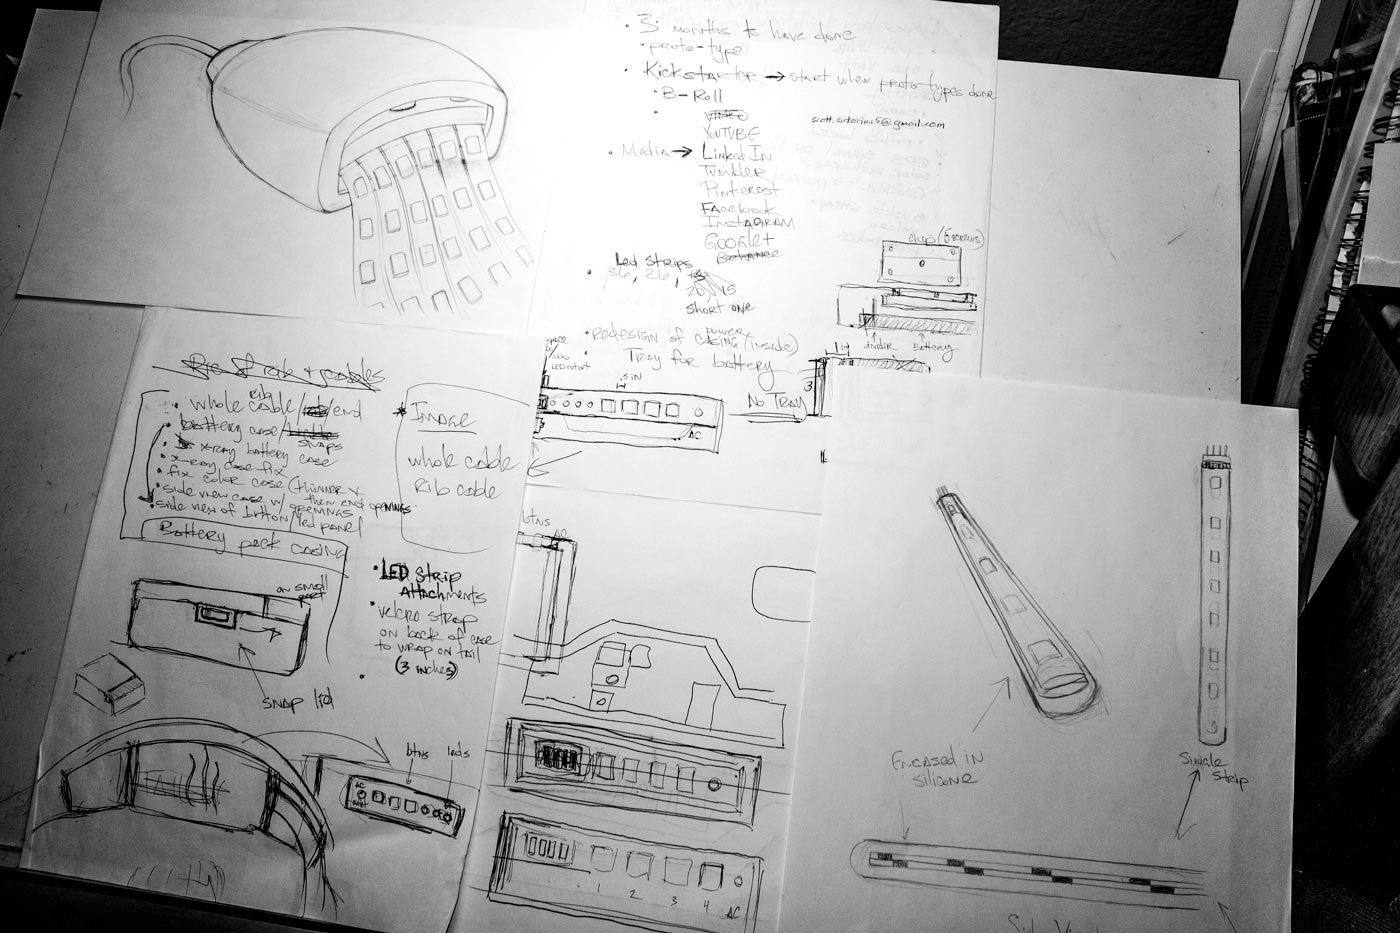 • 3 months to have done
• proto-type
• Kickstarter → start when proto-types done
• B-Roll
• VIDEO
YOUTUBE
• Media → LinkedIN
Tumbler
Pinterest
FAcebook
INSTAGRAM
GOOGLE+
Behance
scott.sutorius5@gmail.com
chip (6 screws)
Led Strips
• 36, 26,
20, 15
short one
• redesign of power casing (inside)
Tray for battery
dividir
Battery
1 in
3
LED output
.5 IN
AC
No Tray
• whole cable/rib/end
• battery case/
snaps
• x-ray battery case
• x-ray case fix
• fix color case (thinner +
then end openings
• side view case w/ openings
• side view of button/led panel
Battery pack casing
* Image
whole cable
Rib cable
on small part
snap lid
• LED Strip
Attachments
• velcro strap
on back of case
to wrap on tail
(3 inches)
btns
leds
AC
outlet
btns
AC
1 2 3 4 AC
Encased in
silicone
Single
strip
Side View